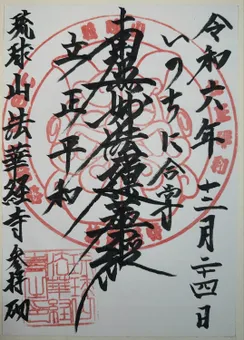 令和六年十二月二四日
いのちに合掌
南無妙法蓮華経
立正平和
琉球山法華経寺参拝